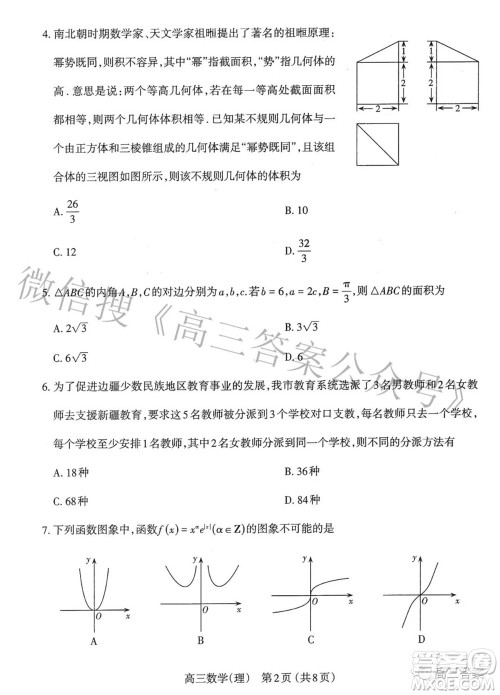 4. 南北朝时期数学家、天文学家祖暅提出了著名的祖暅原理：
幂势既同，则积不容异，其中“幂”指截面积，“势”指几何体的
高. 意思是说：两个等高几何体，若在每一等高处截面面积
都相等，则两个几何体体积相等. 已知某不规则几何体与一
个由正方体和三棱锥组成的几何体满足“幂势既同”，且该组
合体的三视图如图所示，则该不规则几何体的体积为
1
2
2
1
2
2
A. 26/3
B. 10
C. 12
D. 32/3
5. △ABC的内角A,B,C的对边分别为a,b,c.若b=6,a=2c,B=π/3,则△ABC的面积为
A. 2√3
B. 3√3
C. 6√3
D. 6
6. 为了促进边疆少数民族地区教育事业的发展，我市教育系统选派了3名男教师和2名女教
师去支援新疆教育，要求这5名教师被分派到3个学校对口支教，每名教师只去一个学校，
每个学校至少安排1名教师，则不同的分派方法有
A. 18种
B. 36种
C. 68种
D. 84种
7. 下列函数图象中，函数f(x)=x^α e^|x|(α∈Z)的图象不可能的是
y
O
x
A
y
O
x
B
y
O
x
C
y
O
x
D
高三数学(理) 第2页(共8页)
微信搜《高三答案公众号》